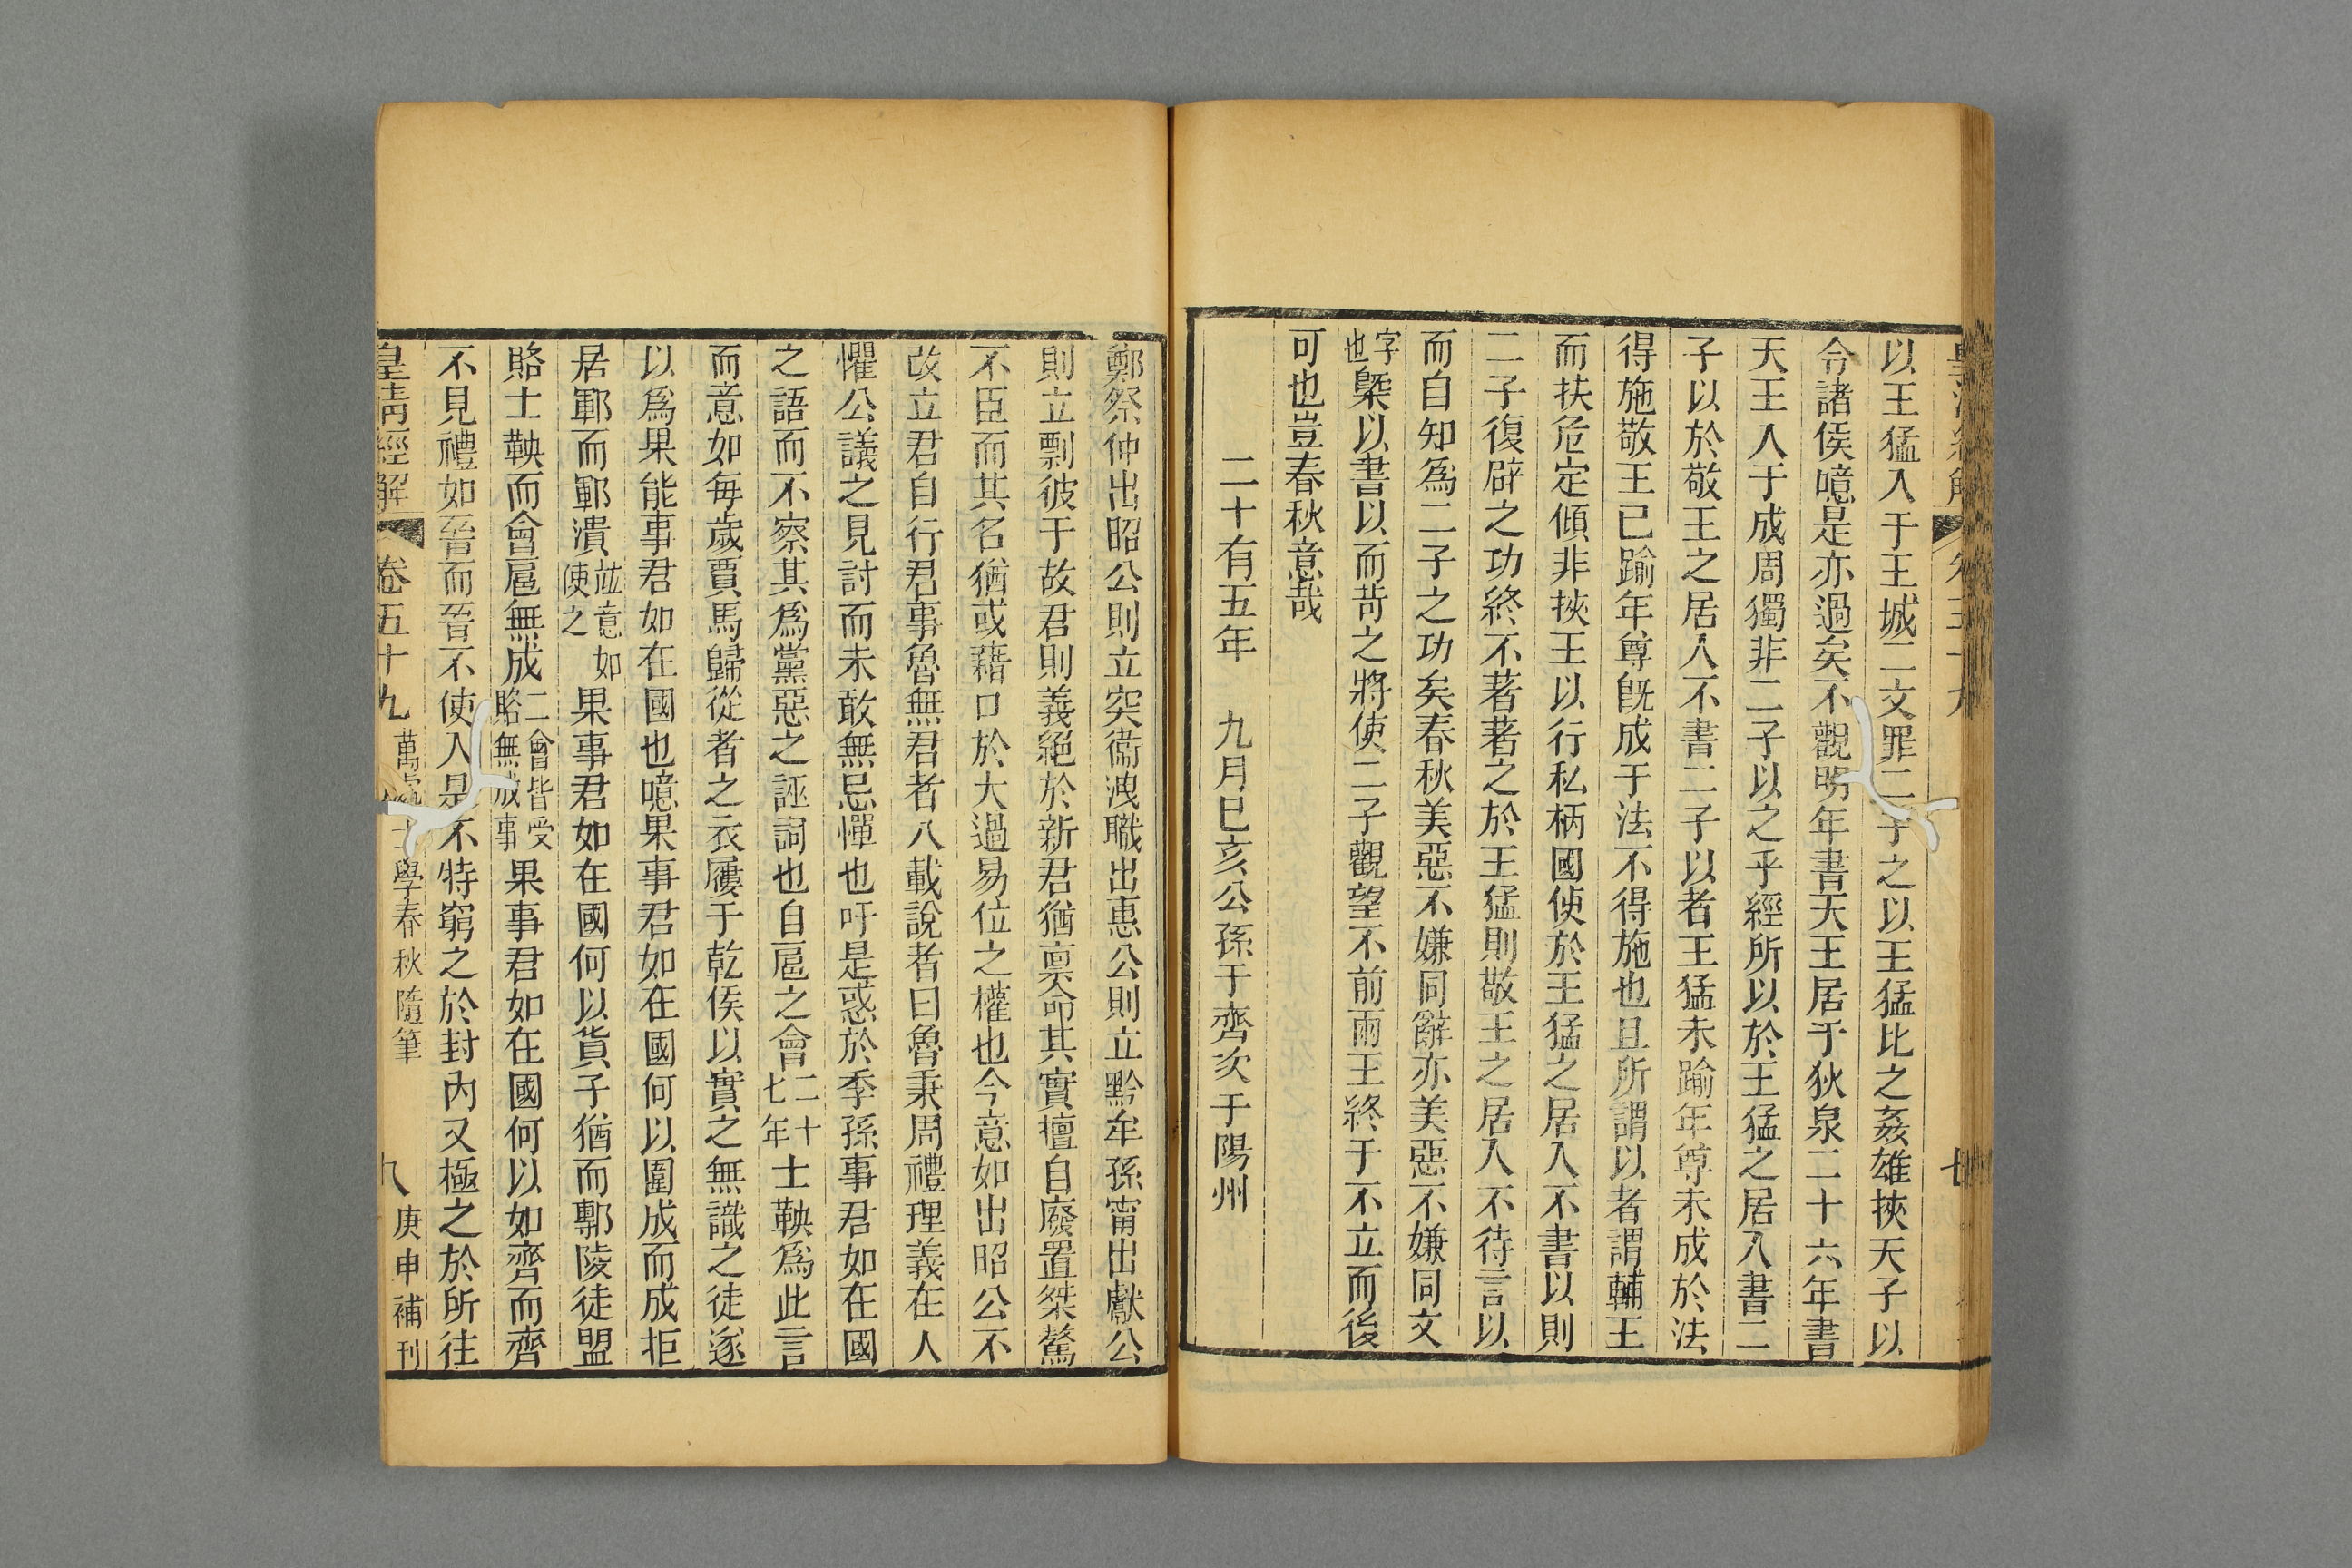 以王猛入于王城二文罪二子之以王猛比之姦雄挾天子以
令諸侯噫是亦過矣不觀明年書天王居于狄泉二十六年書
天王入于成周獨非二子以之乎經所以於王猛之居入書二
子以於敬王之居入不書二子以者王猛未踰年尊未成於法
得施敬王已踰年尊旣成于法不得施也且所謂以者謂輔王
而扶危定傾非挾王以行私柄國使於王猛之居入不書以則
二子復辟之功終不著著之於王猛則敬王之居入不待言以
而自知爲二子之功矣春秋美惡不嫌同辭亦美惡不嫌同文
字
也
槩以書以而苛之將使二子觀望不前兩王終于不立而後
可也豈春秋意哉
二十有五年 九月巳亥公孫于齊次于陽州
鄭祭仲出昭公則立突衞洩職出惠公則立黔牟孫甯出獻公
則立剽彼于故君則義絕於新君猶禀命其實擅自廢置桀驁
不臣而其名猶或藉口於大過易位之權也今意如出昭公不
改立君自行君事魯無君者八載說者曰魯秉周禮理義在人
懼公議之見討而未敢無忌憚也吁是惑於季孫事君如在國
之語而不察其爲黨惡之誣詞也自扈之會
二十
七年
士鞅爲此言
而意如每歲賈馬歸從者之衣屨于乾侯以實之無識之徒遂
以爲果能事君如在國也噫果事君如在國何以圍成而成拒
居鄆而鄆潰
竝意如
使之
果事君如在國何以貨子猶而鄟陵徒盟
賂士鞅而會扈無成
二會皆受
賂無成事
果事君如在國何以如齊而齊
不見禮如晉而晉不使入是不特窮之於封內又極之於所往
皇淸經解 卷五十九 學春秋隨筆 八 庚申補刊